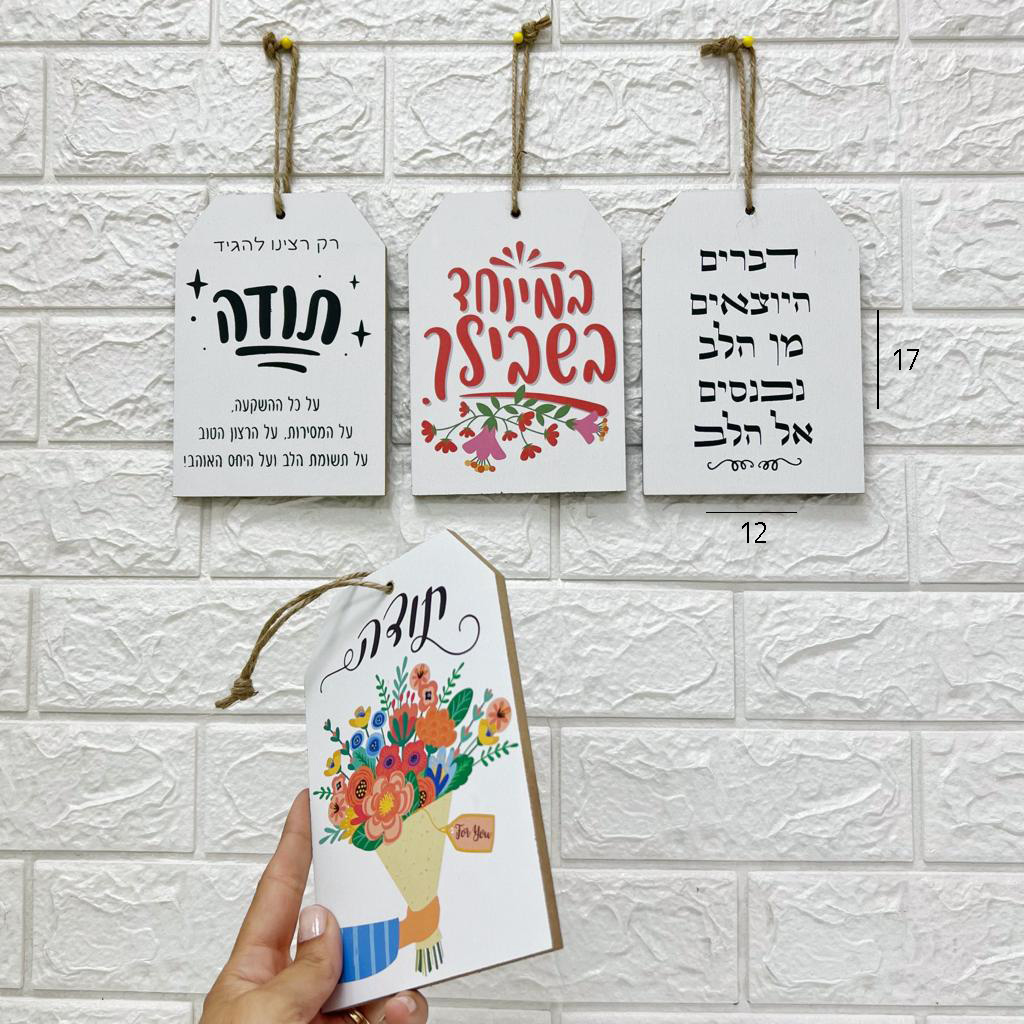 רק רצינו להגיד
תודה
על כל ההשקעה,
על המסירות, על הרצון הטוב
על תשומת הלב ועל היחס האוהב!
במיוחד
בשבילך.
דברים
היוצאים
מן הלב
נכנסים
אל הלב
17
12
תודה
For You